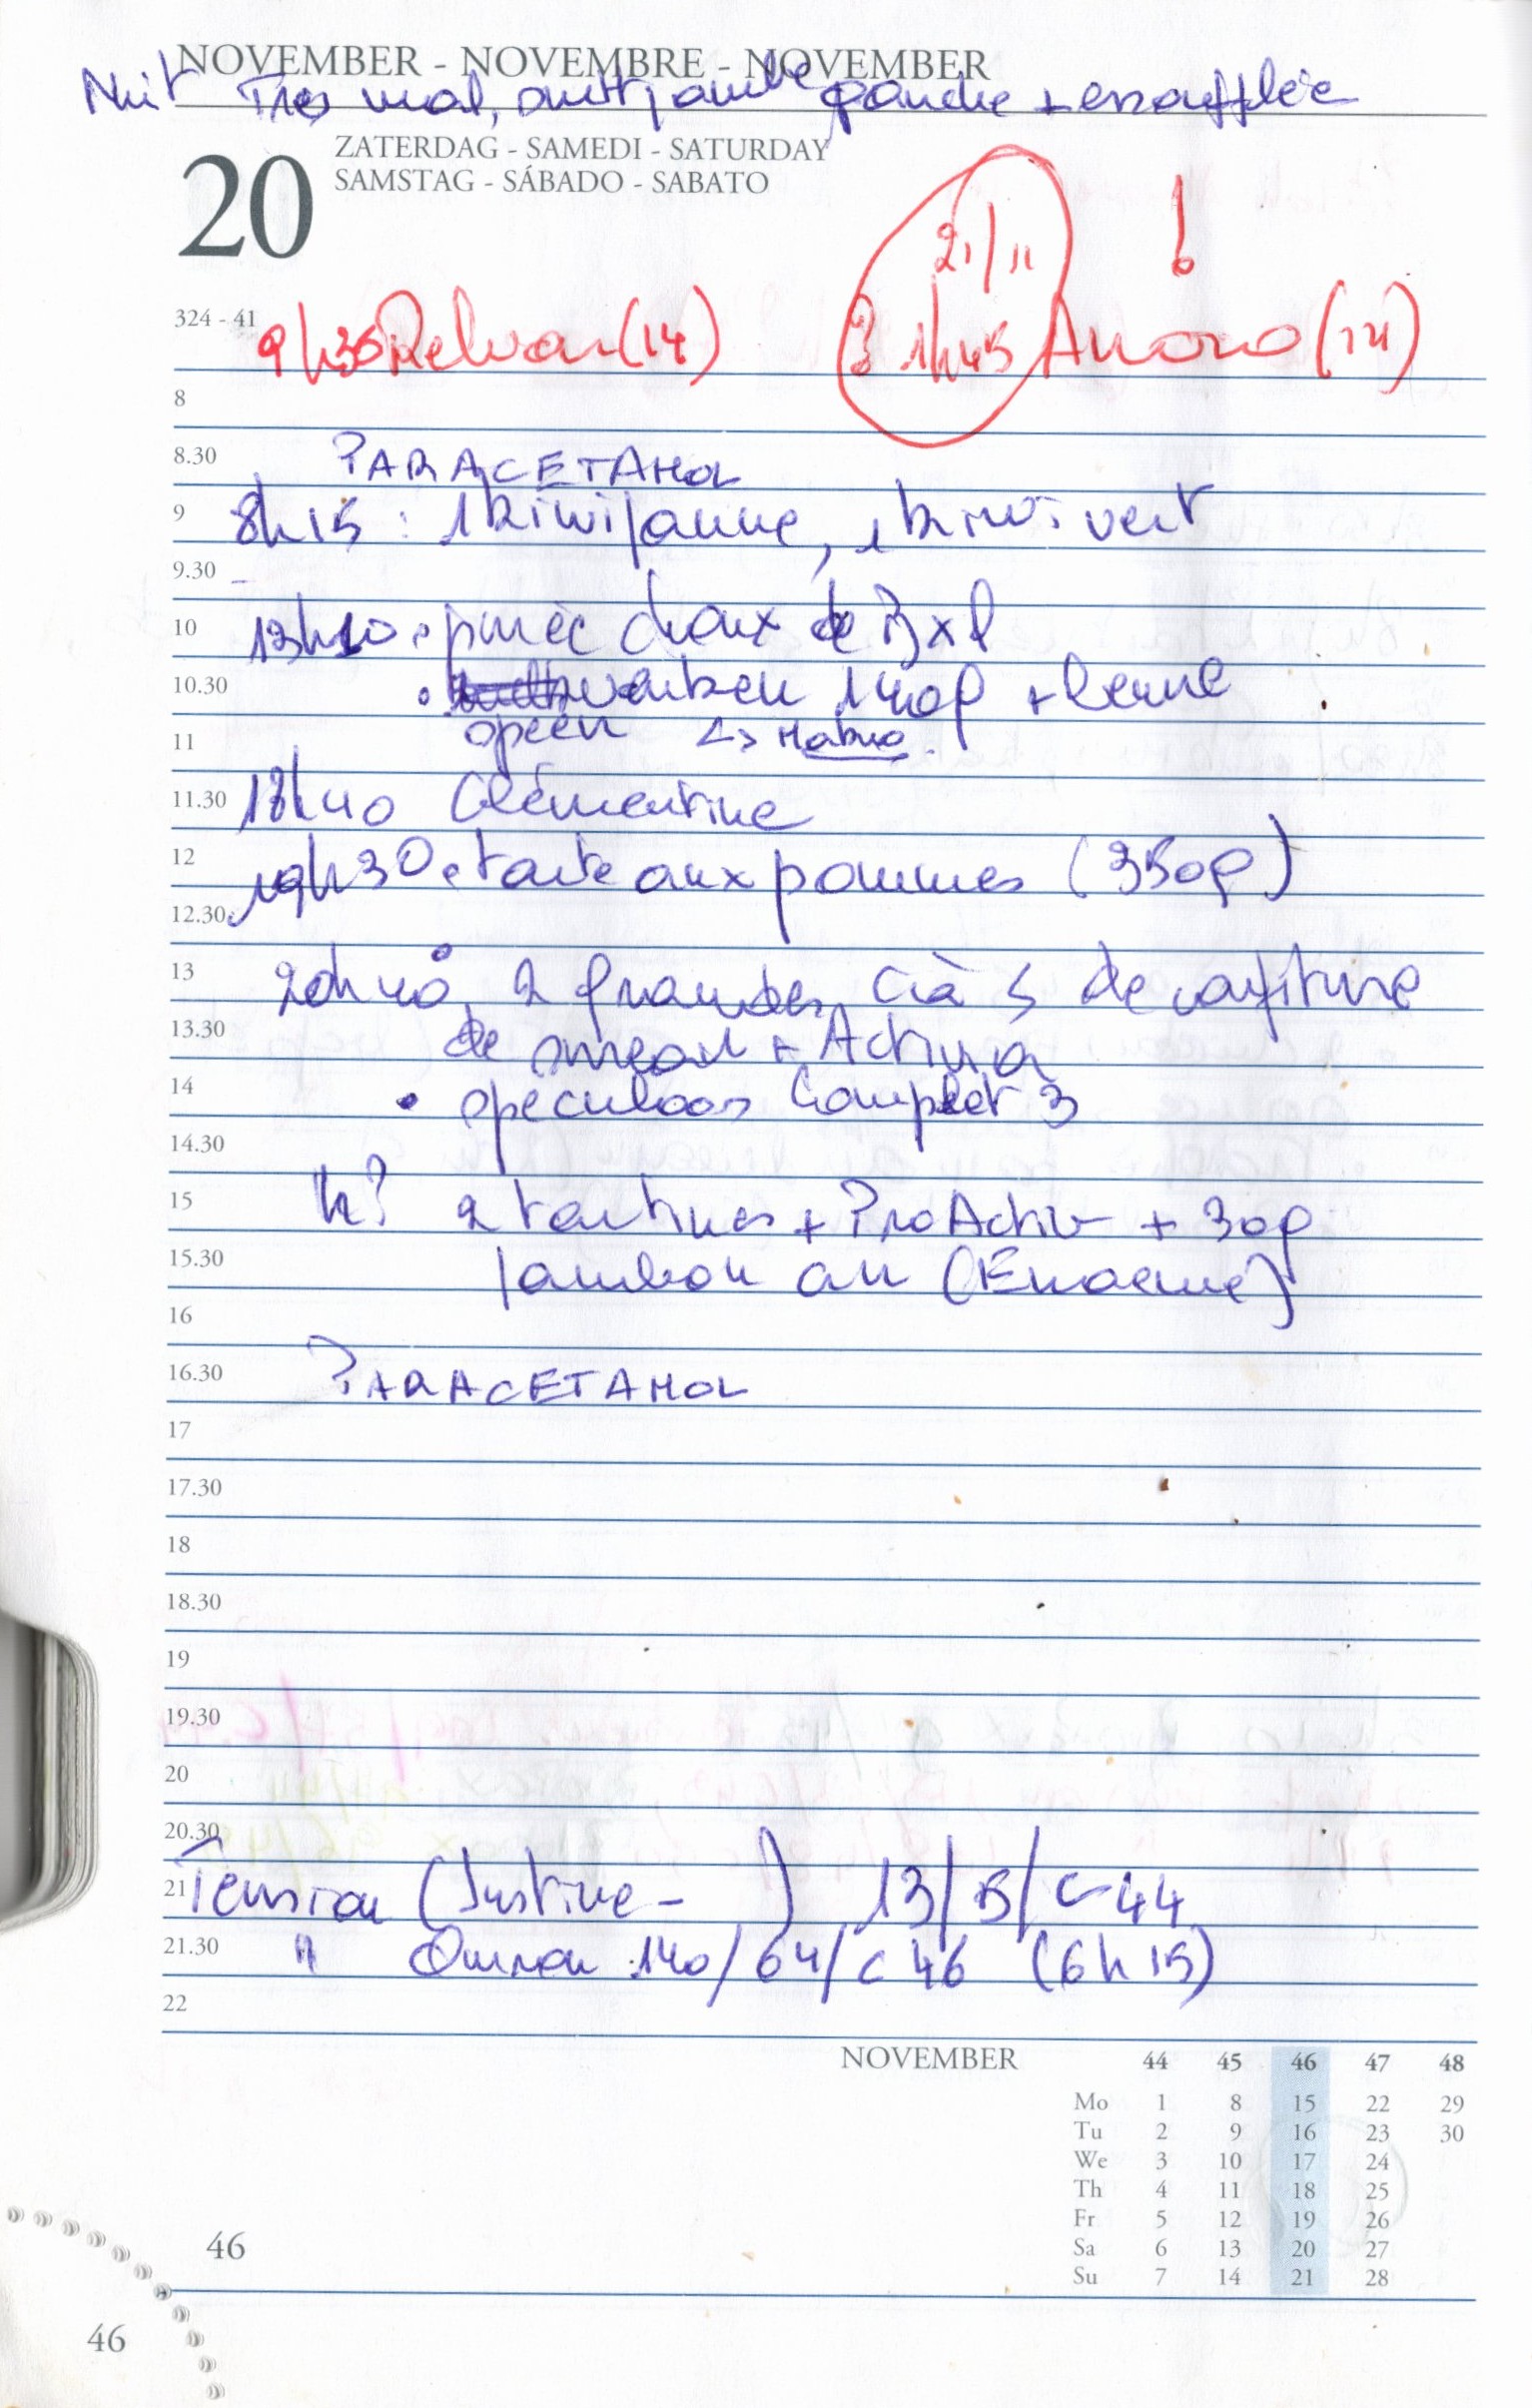 NOVEMBER - NOVEMBRE - NOVEMBER
Nuit Très mal, surtt jambe gauche + essoufflée
ZATERDAG - SAMEDI - SATURDAY
20
SAMSTAG - SÁBADO - SABATO
21/11 !
324 - 41
9h35 Relvar (14) 1h45 Anoro (14)
8
8.30 PARACETAMOL
9 8h15 : 1 kiwi jaune, 1 kiwi vert
9.30
10 13h10 • purée choux de Bxl
10.30 • 140g +
11
11.30 18h40 Clémentine
12 19h30 • tarte aux pommes (350g)
12.30
13 20h40 • 2 grandes c à s de confiture
13.30 de sureau + Activia
14 • speculoos Complet 3
14.30
15 h? 2 tartines + ProActiv + 30g
15.30 jambon cru
16
16.30 PARACETAMOL
17
17.30
18
18.30
19
19.30
20
20.30
21 Tension (Justine - ) 13/5/C 44
21.30 " Omron : 140/64/c 46 (6h15)
22
NOVEMBER 44 45 46 47 48
Mo 1 8 15 22 29
Tu 2 9 16 23 30
We 3 10 17 24
Th 4 11 18 25
Fr 5 12 19 26
Sa 6 13 20 27
Su 7 14 21 28
46
46